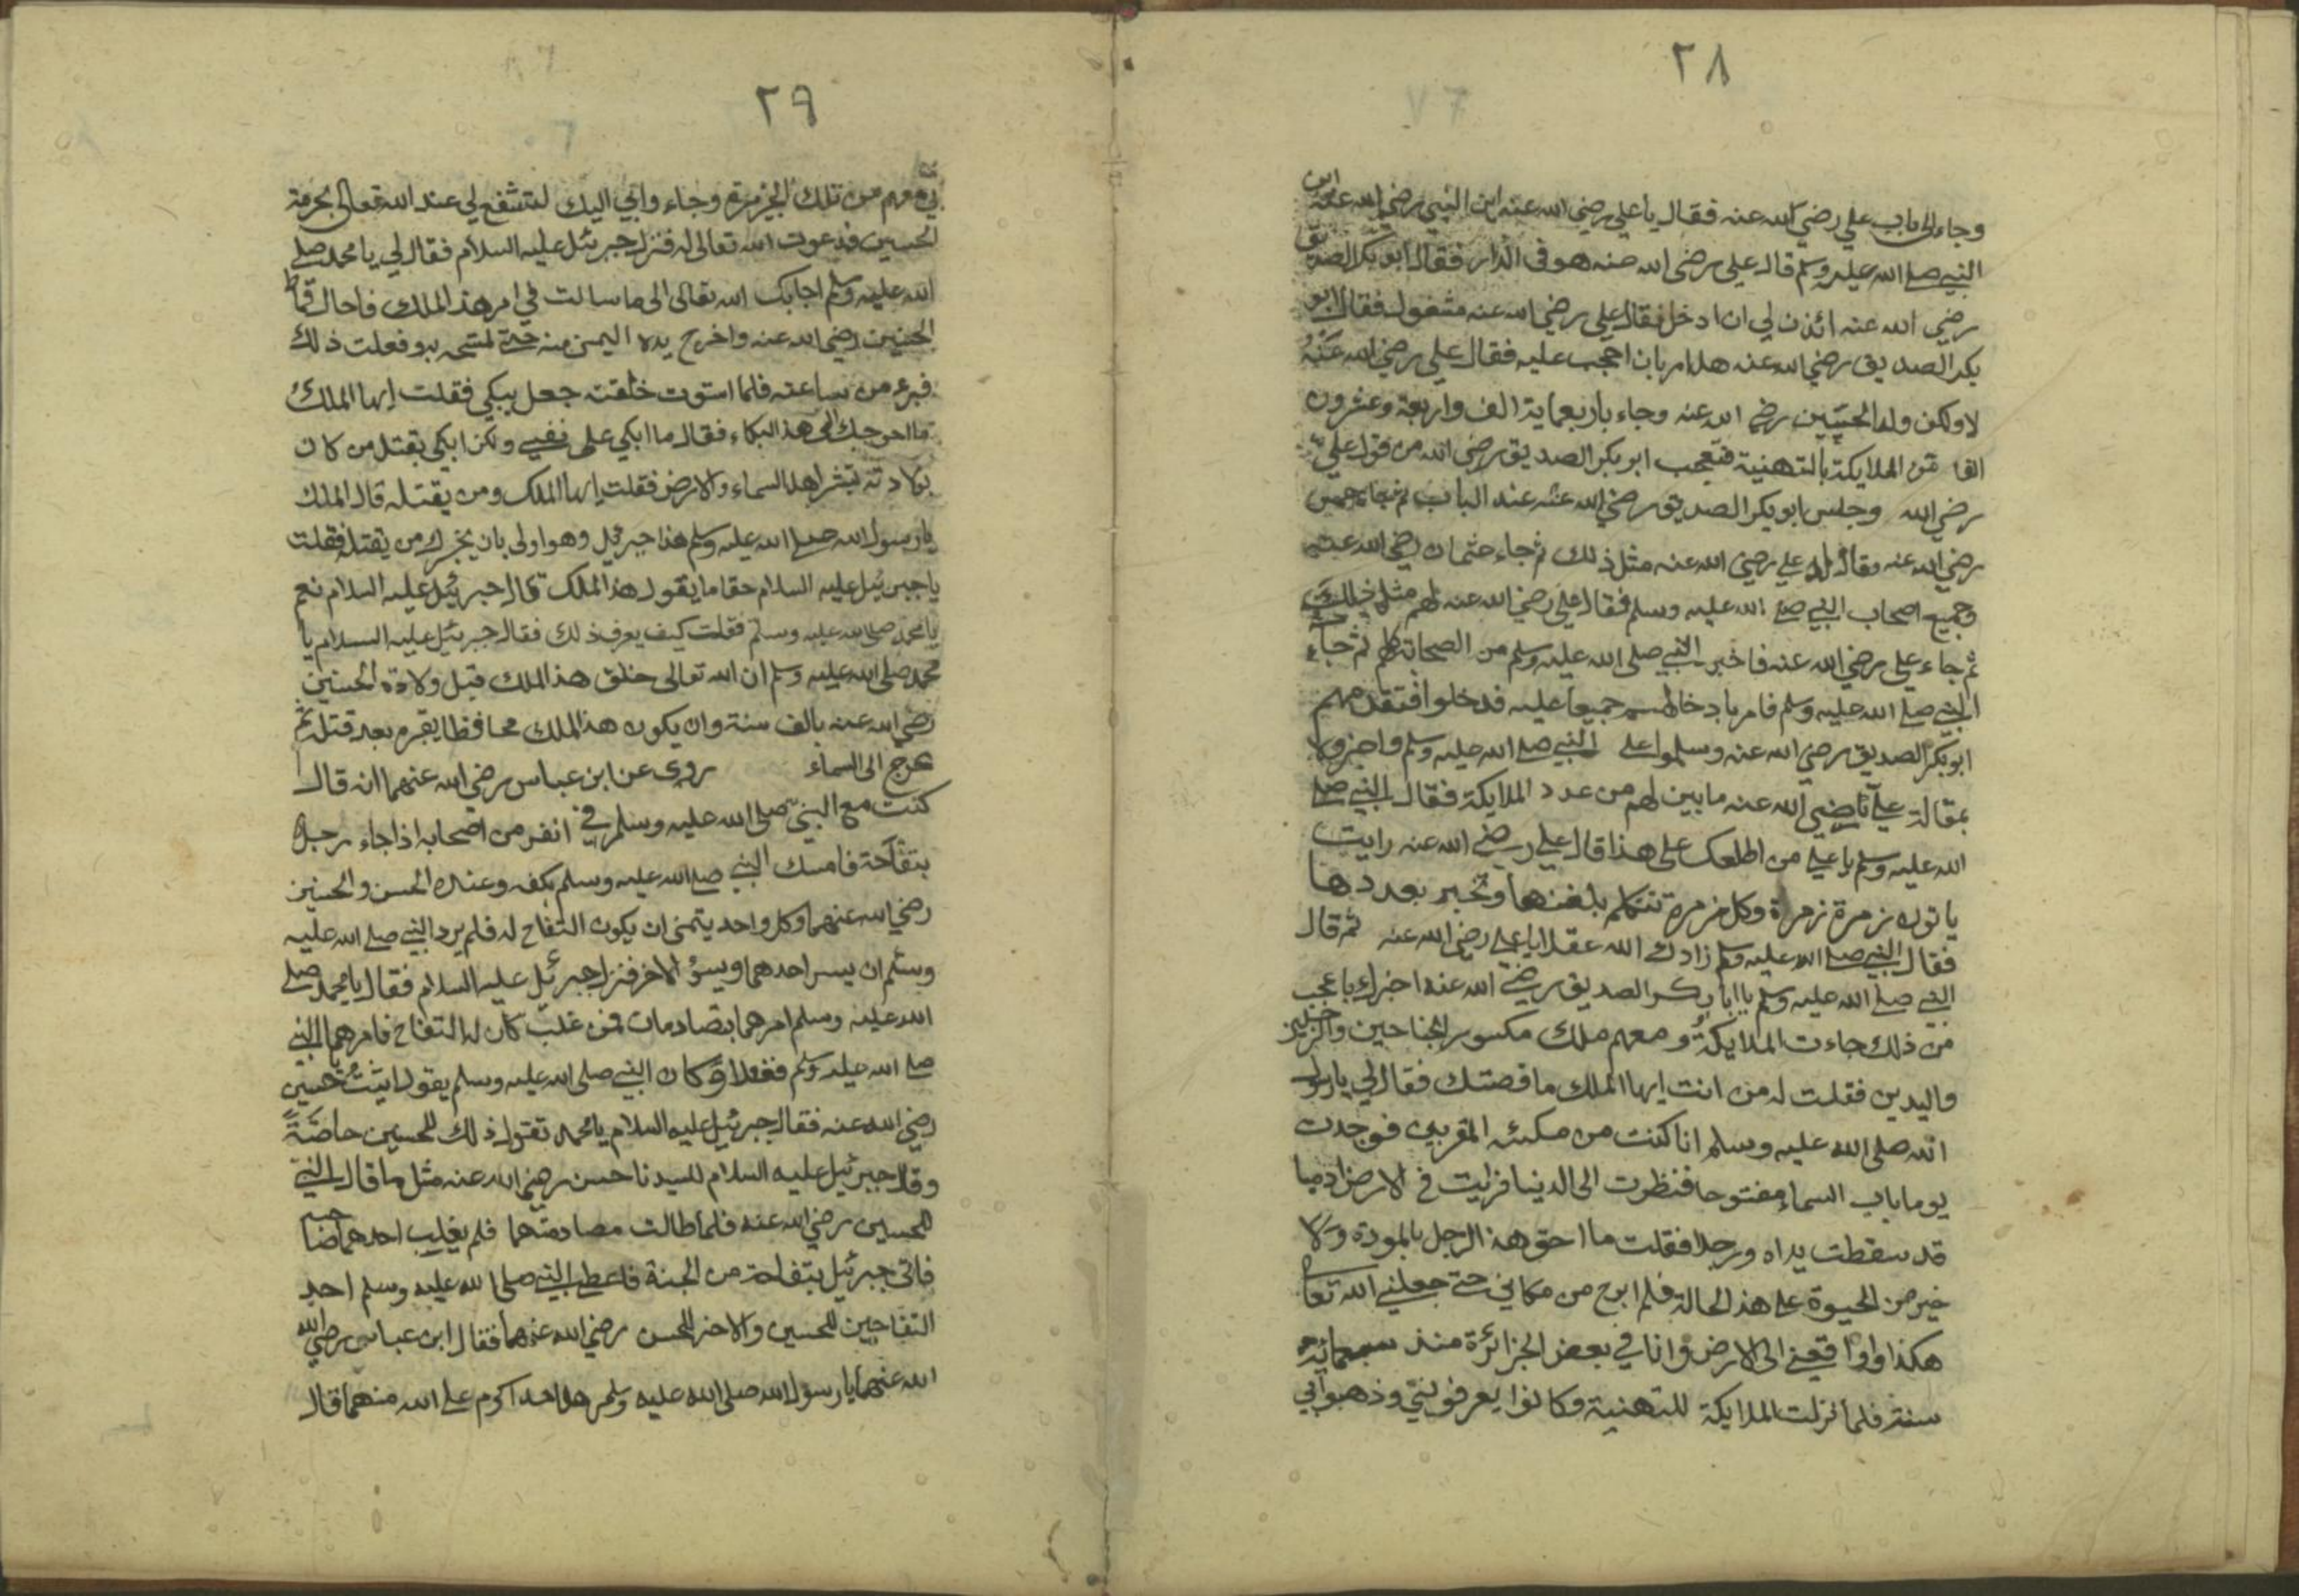 ٢٨
وجاء الى باب علي رضي الله عنه فقال يا علي رضي الله عنه اين النبي رضي الله عنه اين
النبي صلى الله عليه وسلم قال علي رضى الله عنه هو فى الدار فقال ابو بكر الصديق
رضي الله عنه ائذن لي ان ادخل فقال علي رضي الله عنه مشغول فقال ابو
بكر الصديق رضي الله عنه هل امر بان احجب عليه فقال علي رضي الله عنه
لا ولكن ولد الحسين رضي الله عنه وجاء باربعماية الف واربعة وعشرون
الفا من الملايكة بالتهنية فتعجب ابو بكر الصديق رضي الله من قول علي
رضي الله وجلس ابو بكر الصديق رضي الله عنه عند الباب ثم جاء
رضي الله عنه وقال له علي رضي الله عنه مثل ذلك ثم جاء عثمان رضي الله عنه
وجميع اصحاب النبي صلى الله عليه وسلم فقال علي رضي الله عنه لهم مثل ذلك
ثم جاء علي رضي الله عنه فاخبر النبي صلى الله عليه وسلم من الصحابة كلهم ثم جاء
النبي صلى الله عليه وسلم فامر بادخالهم جميعا عليه فدخلوا فتقدمهم
ابو بكر الصديق رضي الله عنه وسلموا على النبي صلى الله عليه وسلم واخبروه
بمقالة علي رضي الله عنه ما بين لهم من عدد الملايكة فقال النبي صلى
الله عليه وسلم يا علي من اطلعك على هذا قال علي رضي الله عنه رايت
ياتون زمرة زمرة وكل زمرة تتكلم بلغتها وتخبر بعددها
فقال النبي صلى الله عليه وسلم زادك الله عقلا يا علي رضي الله عنه ثم قال
النبي صلى الله عليه وسلم يا ابا بكر الصديق رضي الله عنه اخبرك باعجب
من ذلك جاءت الملايكة ومعهم ملك مكسور الجناحين والرجلين
واليدين فقلت له من انت ايها الملك ما قصتك فقال لي يا رسول
الله صلى الله عليه وسلم انا كنت من المقربين فوجدت
يوما باب السماء مفتوحا فنظرت الى الدنيا فرايت في الارض ادميا
قد سقطت يداه ورجلا فقلت ما احق هذا الرجل بالمودة ولا
خير من الحيوة على هذ الحالة فلم ابرح من مكاني حتى جعلني الله تعالى
هكذا واوقعني الى الارض وانا في بعض الجزائرة منذ سبعماية
سنة فلما نزلت الملايكة للتهنية وكانوا يعرفونني وذهبوا بي
٢٩
معهم من تلك الجزيرة وجاء وابي اليك لتشفع لي عند الله تعالى بحرمة
الحسين فدعوت الله تعالى له فنزل جبرئل عليه السلام فقال لي يا محمد صلى
الله عليه وسلم اجابك الله تعالى الى ما سالت في امر هذ الملك فاحل قماط
الحسين رضي الله عنه واخرج يده اليمن منه حتى تمسح به وفعلت ذلك
فبرء من ساعته فلما استوت خلقته جعل يبكي فقلت ايها الملك
ما احوجك الى هذ البكاء فقال ما ابكي على نفسي ولكن ابكي بقتل من كان
بولادته تبشر اهل السماء والارض فقلت ايها الملك ومن يقتله قال الملك
يا رسول الله صلى الله عليه وسلم هذا جبرئيل وهو اولى بان يخبرك من يقتله فقلت
يا جبرئيل عليه السلام حقا ما يقول هذ الملك قال جبرئيل عليه السلام نعم
يا محمد صلى الله عليه وسلم فقلت كيف يعرف ذلك فقال جبرئيل عليه السلام يا
محمد صلى الله عليه وسلم ان الله تعالى خلق هذ الملك قبل ولادة الحسين
رضي الله عنه بالف سنة وان يكون هذ الملك محافظا بقبره بعد قتله ثم
عرج الى السماء روى عن ابن عباس رضي الله عنهما انه قال
كنت مع النبي صلى الله عليه وسلم في انفر من اصحابه اذا جاء رجل
بتفاحة فامسك النبي صلى الله عليه وسلم بكفه وعنده الحسن والحسين
رضي الله عنهما وكل واحد يتمنى ان يكون التفاح له فلم يرد النبي صلى الله عليه
وسلم ان يسر احدهما ويسؤ الاخر فنزل جبرئيل عليه السلام فقال يا محمد صلى
الله عليه وسلم امرهما يتصادمان فمن غلب كان له التفاح فامرهما النبي
صلى الله عليه وسلم ففعلا وكان النبي صلى الله عليه وسلم يقول اثبت يا حسين
رضي الله عنه فقال جبرئيل عليه السلام يا محمد تقول ذلك للحسين خاصة
وقال جبرئيل عليه السلام للسيدنا حسن رضي الله عنه مثل ما قال النبي
للحسين رضي الله عنه فلما طالت مصادمتهما فلم يغلب احدهما
فاتى جبرئيل بتفاحة من الجنة فاعطى النبي صلى الله عليه وسلم احد
التفاحين للحسين والاخر للحسن رضي الله عنهما فقال ابن عباس رضي الله
الله عنهما يا رسول الله صلى الله عليه وسلم هل احد اكرم على الله منهما قال